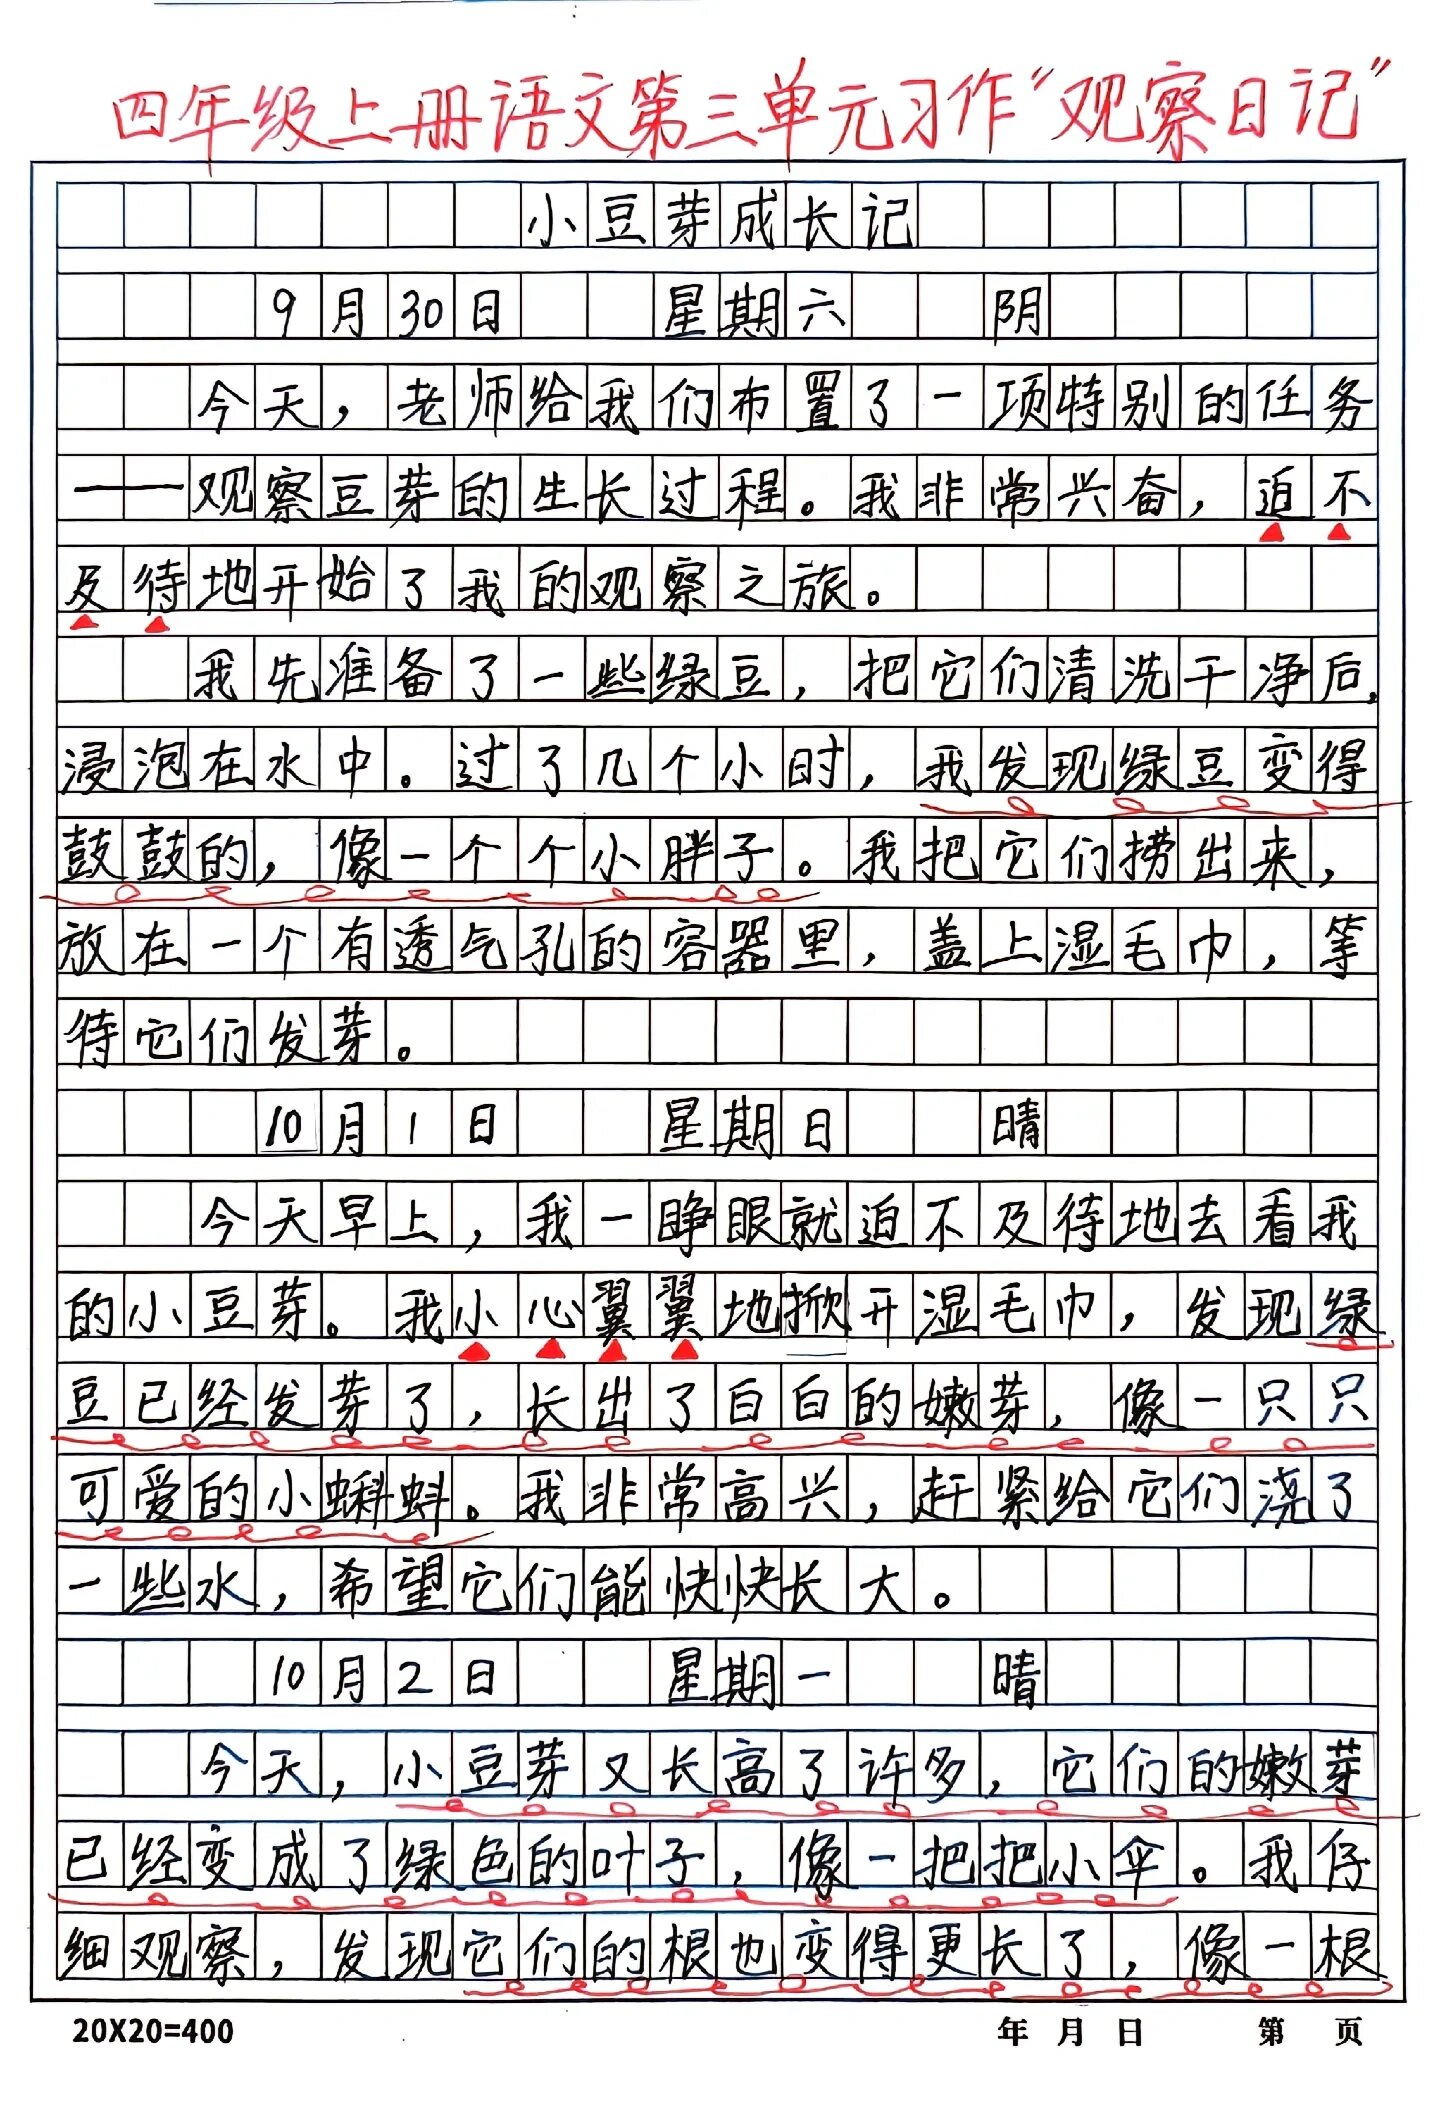 四年级上册语文第三单元习作“观察日记”
小豆芽成长记
9月30日 星期六 阴
今天，老师给我们布置了一项特别的任务
——观察豆芽的生长过程。我非常兴奋，迫不
及待地开始了我的观察之旅。
我先准备了一些绿豆，把它们清洗干净后，
浸泡在水中。过了几个小时，我发现绿豆变得
鼓鼓的，像一个个小胖子。我把它们捞出来，
放在一个有透气孔的容器里，盖上湿毛巾，等
待它们发芽。
10月1日 星期日 晴
今天早上，我一睁眼就迫不及待地去看我
的小豆芽。我小心翼翼地掀开湿毛巾，发现绿
豆已经发芽了，长出了白白的嫩芽，像一只只
可爱的小蝌蚪。我非常高兴，赶紧给它们浇了
一些水，希望它们能快快长大。
10月2日 星期一 晴
今天，小豆芽又长高了许多，它们的嫩芽
已经变成了绿色的叶子，像一把把小伞。我仔
细观察，发现它们的根也变得更长了，像一根
20X20=400 年 月 日 第 页